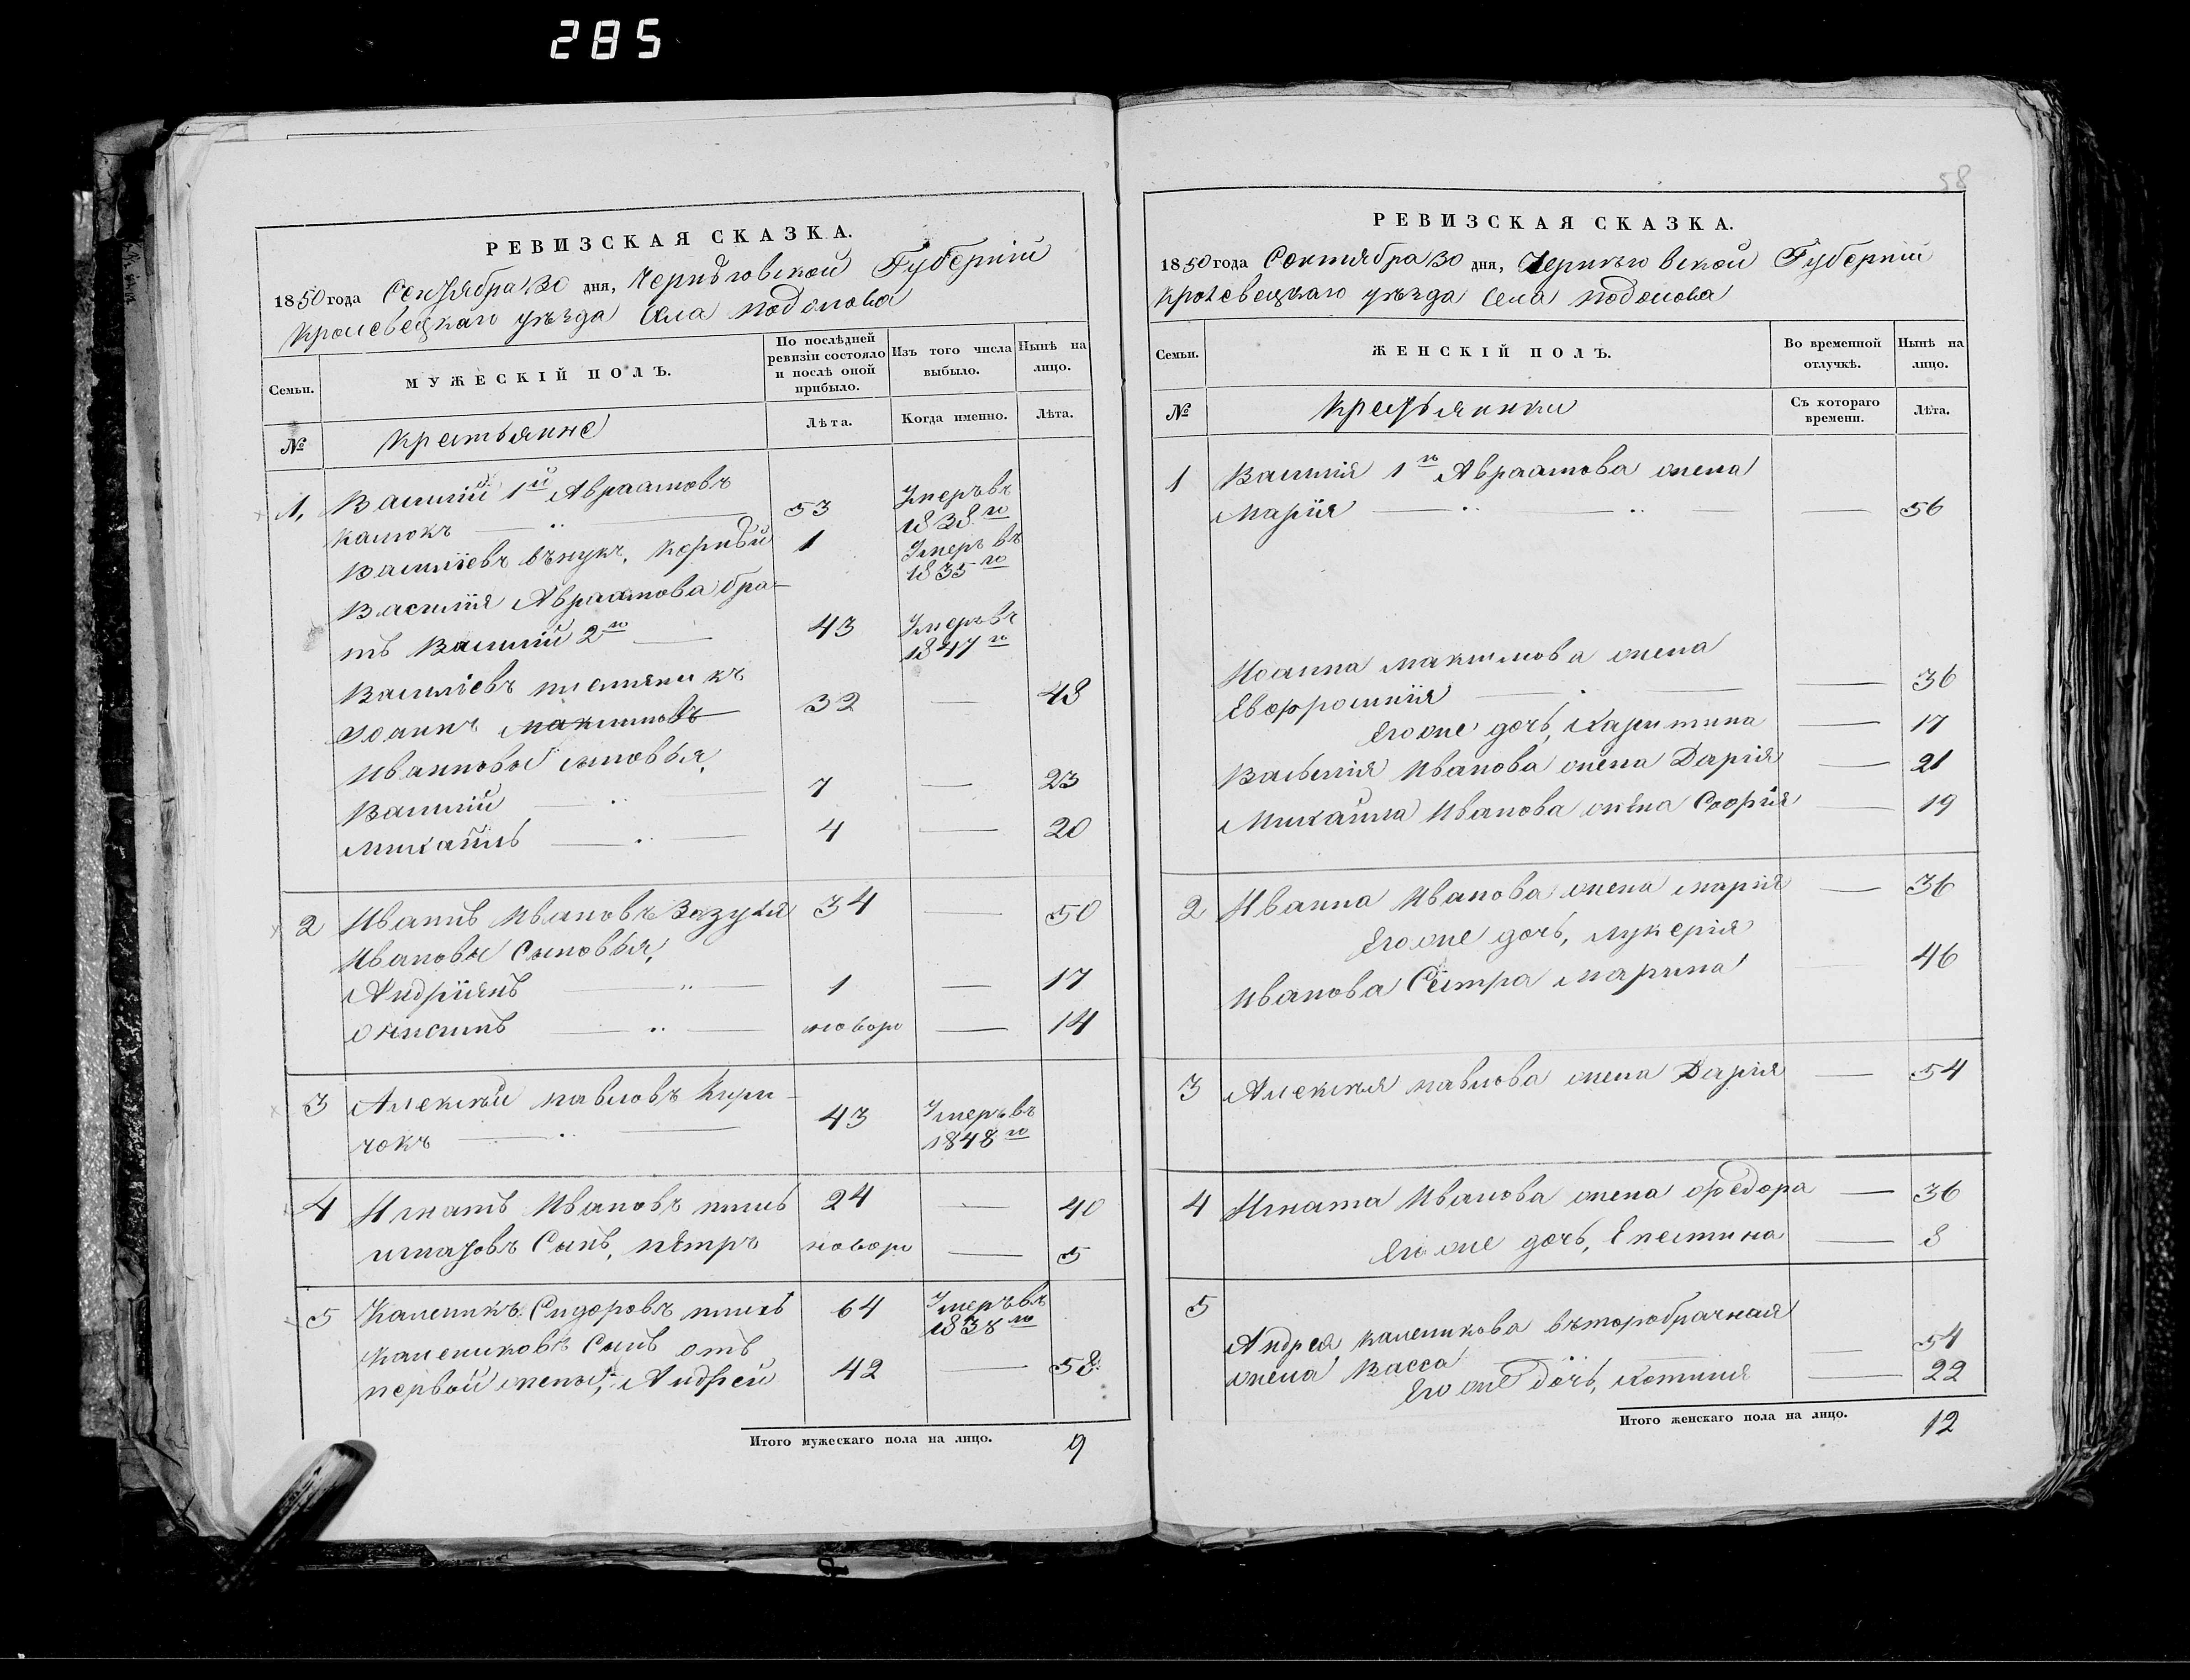 285
58
РЕВИЗСКАЯ СКАЗКА.
1850 года Сентября 30 дня, Чернѣговской Губерніи
Кролевецкаго уѣзда Села Подолова
Семьи. МУЖЕСКІЙ ПОЛЪ. По послѣдней ревизіи состояло и послѣ оной прибыло. Изъ того числа выбыло. Нынѣ на лицо.
№ Крестьяне Лѣта. Когда именно. Лѣта.
1, Василій 1й Авраамовъ
53 Умеръ въ 1838го
Василіевъ внукъ, Корнѣй 1 Умеръ въ 1835го
Василія Авраамова бра-
тъ Василій 2го 43 Умеръ въ 1847го
Василіевъ племяникъ
Іоаннъ Максимовъ 32 — 48
Ивановы сыновья,
Василій 7 — 23
Михаилъ 4 — 20
2 Иванъ Ивановъ Зазуля 34 — 50
Ивановы Сыновья,
Андріянъ 1 — 17
новоро — 14
3 Алексѣй Павловъ Кири-
чокъ 43 Умеръ въ 1848го
4 Игнатъ Ивановъ 24 — 40
Игнатовъ Сынъ, Пётръ новоро — 5
5 Каленикъ Сидоровъ 64 Умеръ въ 1838го
Калениковъ Сынъ отъ
первой жены, Андрей 42 — 58
Итого мужескаго пола на лицо. 9
РЕВИЗСКАЯ СКАЗКА.
1850 года Сентября 30 дня, Чернѣговской Губерніи
Кролевецкаго уѣзда Села Подолова
Семьи. ЖЕНСКІЙ ПОЛЪ. Во временной отлучкѣ. Нынѣ на лицо.
№ Крестьянки Съ котораго времени. Лѣта.
1 Василія 1го Авраамова жена
Марія — 56
Иоанна Максимова жена
Евфросинія — 36
Его же дочь, Харитина — 17
Василія Иванова жена Дарія — 21
Михаила Иванова жена Софія — 19
2 Ивана Иванова жена Марія — 36
Его же дочь, Лукерія
Иванова Сестра Марина 46
3 Алексѣя Павлова жена Дарія — 54
4 Игната Иванова жена Федора — 36
Его же дочь, — 8
5
Андрея Каленикова второбрачная
жена Васса — 54
Его же дочь, — 22
Итого женскаго пола на лицо. 12